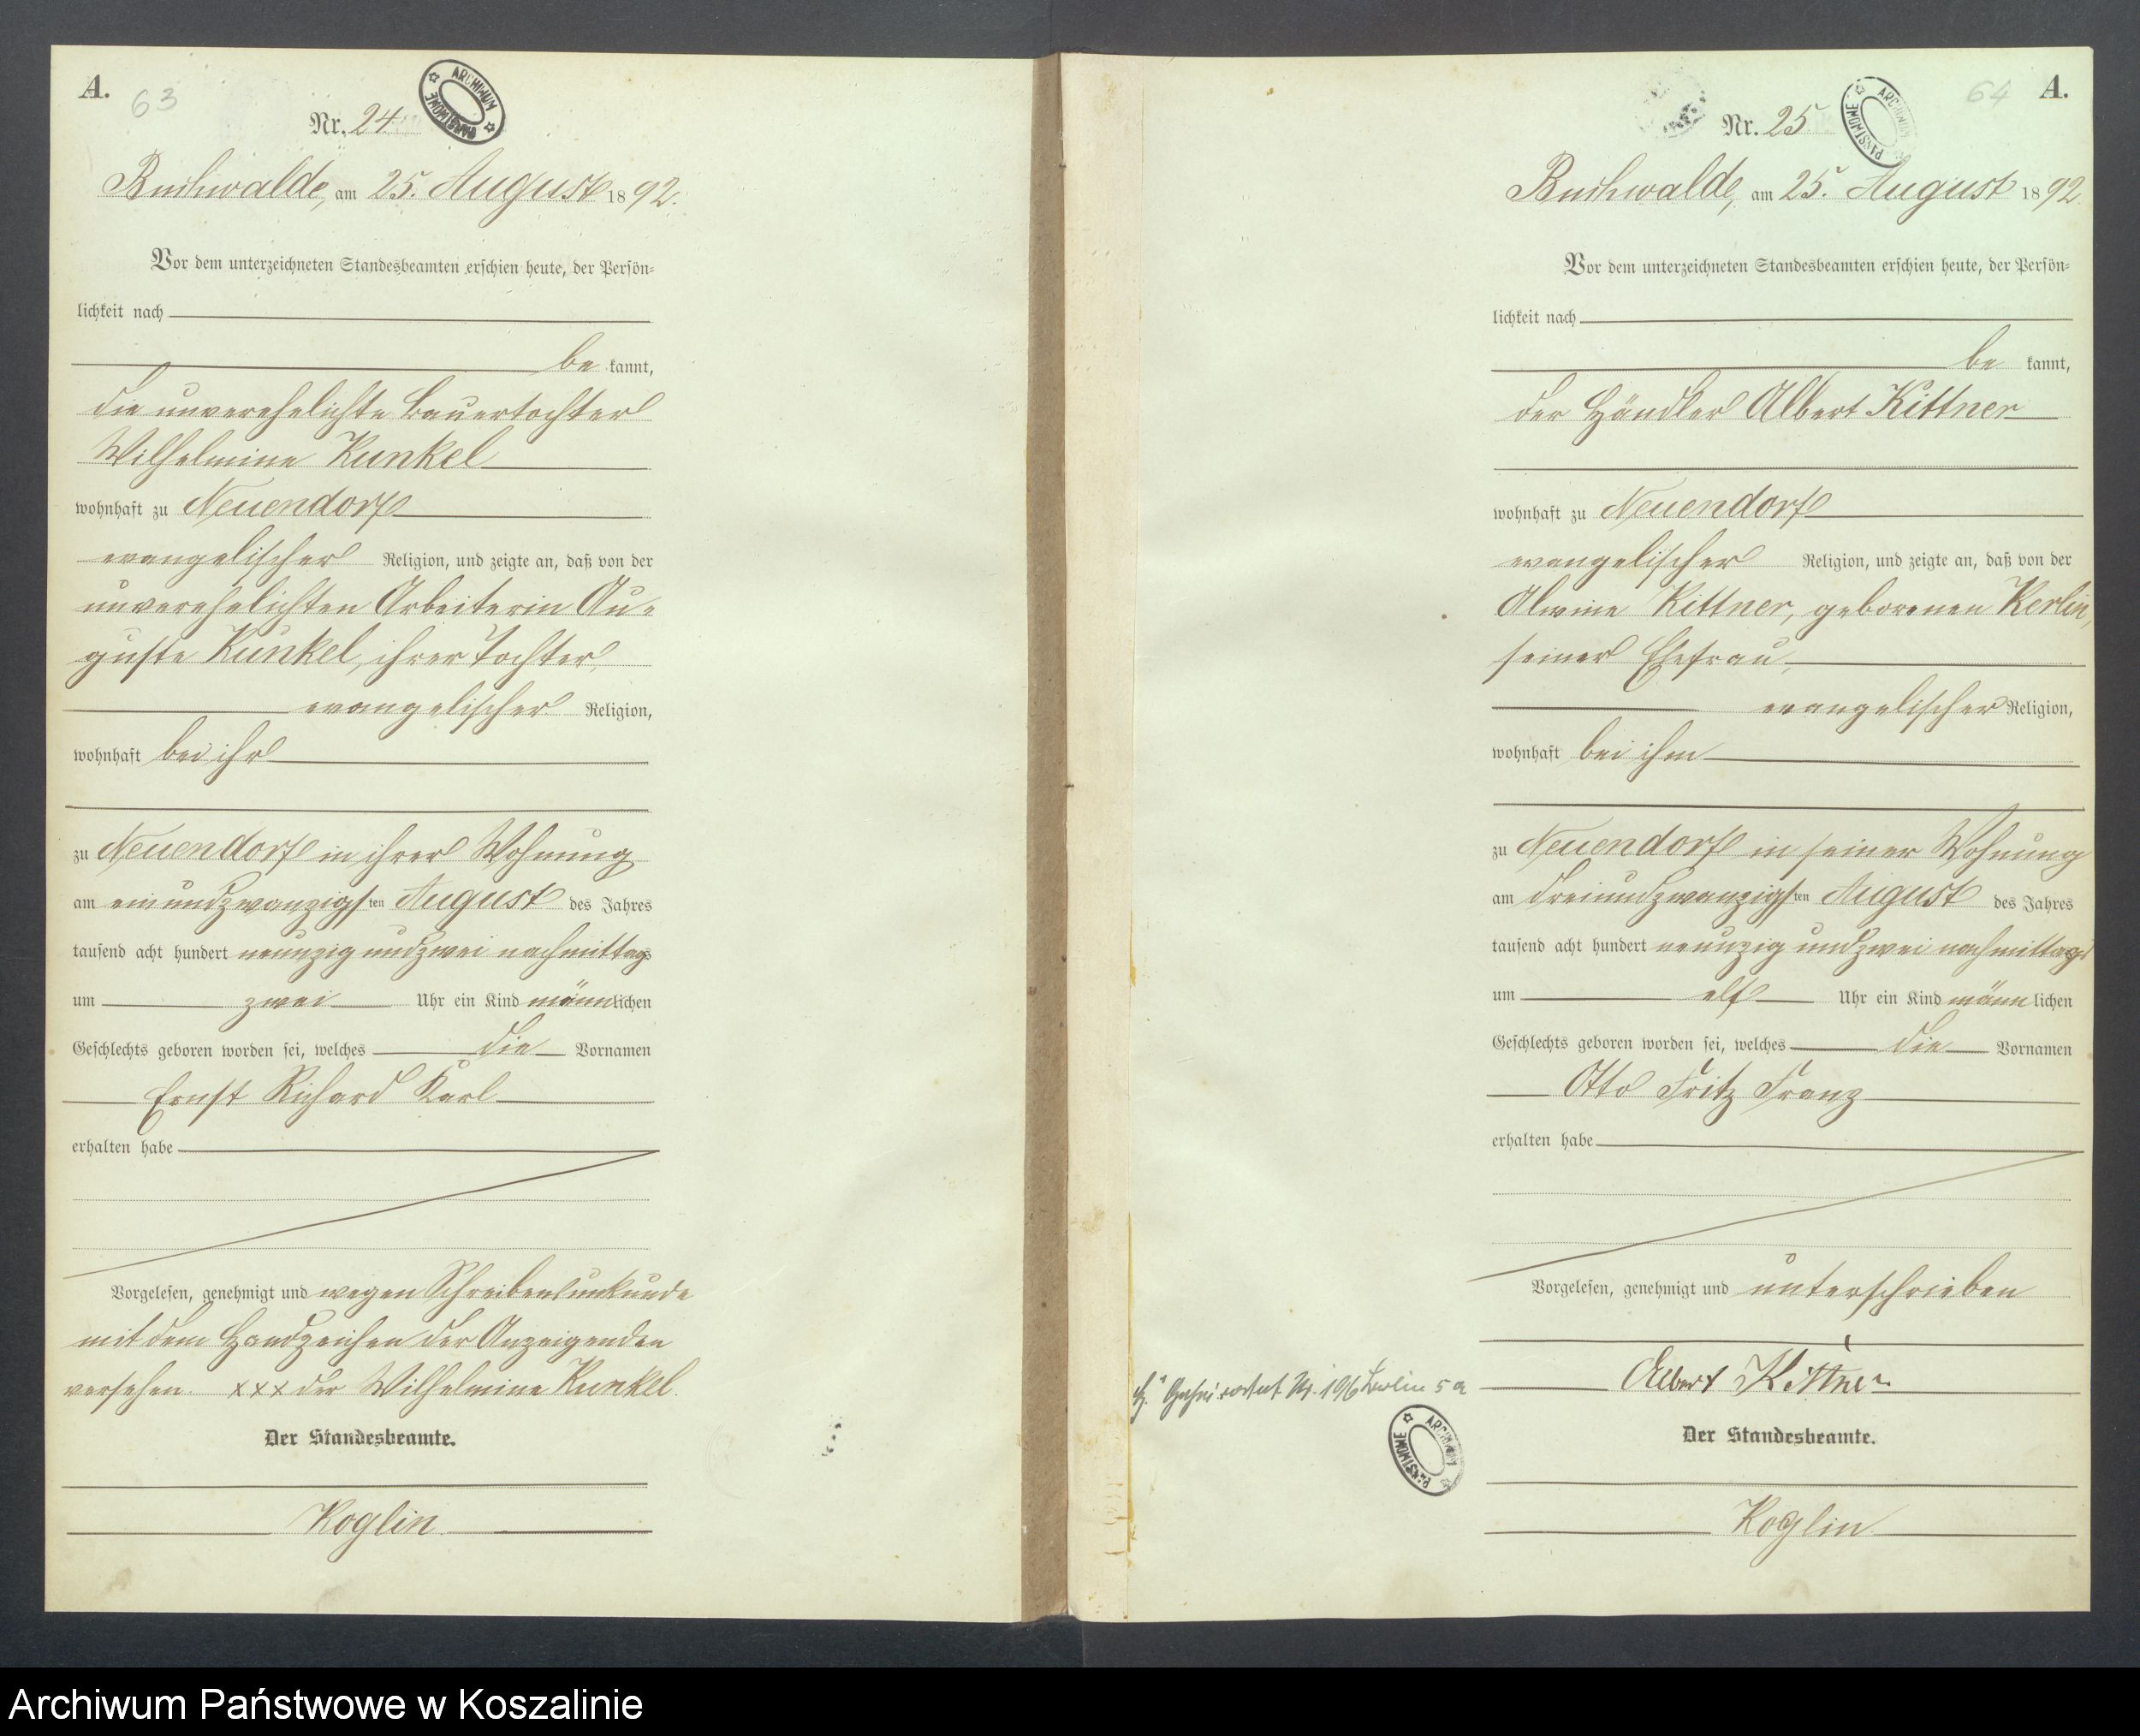 A.
63
Nr. 24
ARCHIWUM PAŃSTWOWE
Buchwalde, am 25. August 1892.
Vor dem unterzeichneten Standesbeamten erschien heute, der Persön-
lichkeit nach
be kannt,
die unverehelichte Bauertochter
Wilhelmine Kunkel
wohnhaft zu Neuendorf
evangelischer Religion, und zeigte an, daß von der
unverehelichten Arbeiterin Au-
guste Kunkel, ihrer Tochter,
evangelischer Religion,
wohnhaft bei ihr
zu Neuendorf in ihrer Wohnung
am einundzwanzigsten August des Jahres
tausend acht hundert neunzig und zwei nachmittags
um zwei Uhr ein Kind männlichen
Geschlechts geboren worden sei, welches die Vornamen
Ernst Richard Karl
erhalten habe
Vorgelesen, genehmigt und wegen Schreibensunkunde
mit dem Handzeichen der Anzeigenden
versehen. xxx der Wilhelmine Kunkel.
Der Standesbeamte.
Koglin
64
A.
Nr. 25
ARCHIWUM PAŃSTWOWE
Buchwalde, am 25. August 1892
Vor dem unterzeichneten Standesbeamten erschien heute, der Persön-
lichkeit nach
be kannt,
der Händler Albert Kittner
wohnhaft zu Neuendorf
evangelischer Religion, und zeigte an, daß von der
Alwine Kittner, geborenen Kerlin,
seiner Ehefrau,
evangelischer Religion,
wohnhaft bei ihm
zu Neuendorf in seiner Wohnung
am dreiundzwanzigsten August des Jahres
tausend acht hundert neunzig und zwei nachmittags
um elf Uhr ein Kind männlichen
Geschlechts geboren worden sei, welches die Vornamen
Otto Fritz Franz
erhalten habe
Vorgelesen, genehmigt und unterschrieben
Albert Kittner
Nr. 196 Berlin 5 a
ARCHIWUM PAŃSTWOWE
Der Standesbeamte.
Koglin
Archiwum Państwowe w Koszalinie